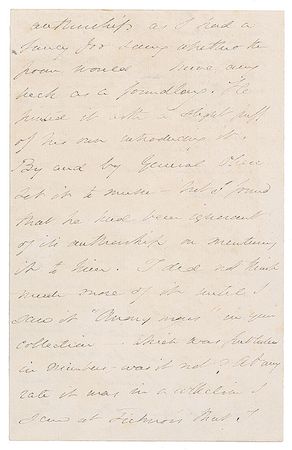 authorship as I had a
fancy for seeing whether the
poem would have any
luck as a foundling. He
printed it with a slight puff
of his own introducing it.
By and by General
set it to music – but I found
that he had been ignorant
of its authorship on mentioning
it to him. I did not think
much more of it until I
saw it "Anonymous" in your
collection – which was published
in numbers – was it not? At any
rate it was in a collection I
saw at Ticknor's that I